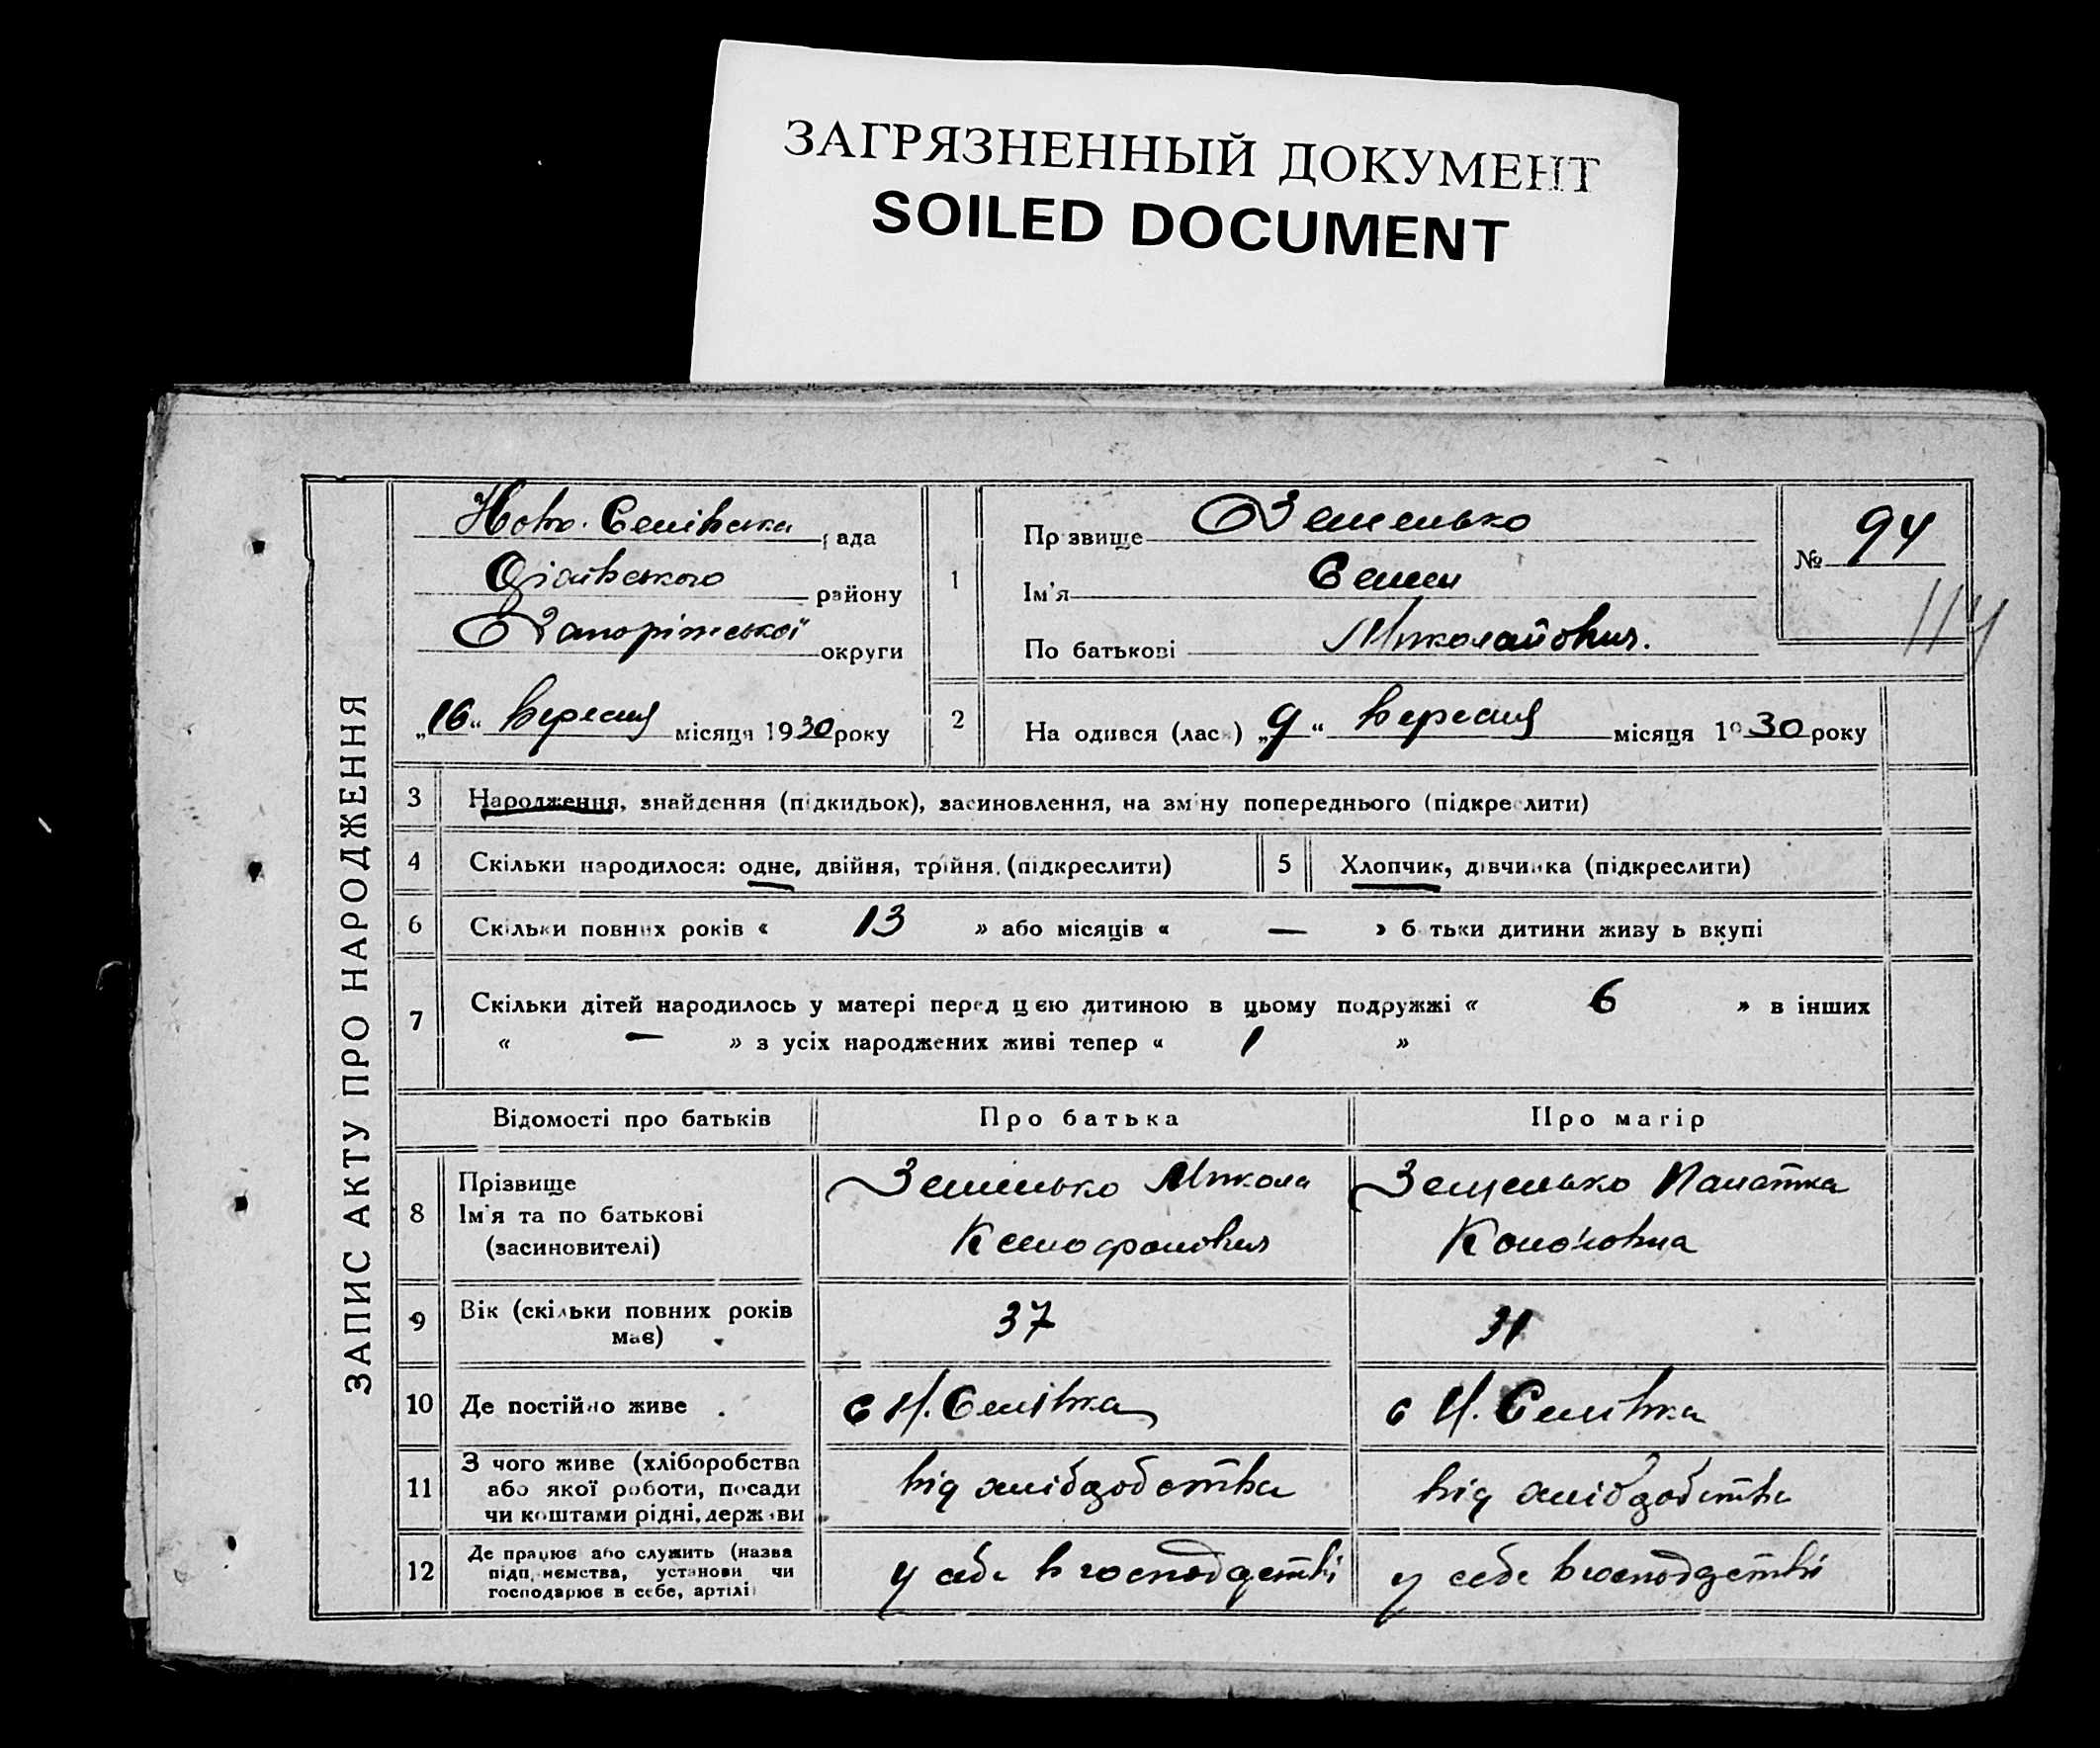 ЗАГРЯЗНЕННЫЙ ДОКУМЕНТ
SOILED DOCUMENT
ЗАПИС АКТУ ПРО НАРОДЖЕННЯ
Ново. Селівська рада
району
Запоріжської округи
„16“ вересня місяця 1930 року
1
Прізвище
Ім'я Семен
По батькові Миколайович.
№ 94
114
2
На одився (лась) „9“ вересня місяця 1930 року
3 Народження, знайдення (підкидьок), засиновлення, на зміну попереднього (підкреслити)
4 Скільки народилося: одне, двійня, трійня. (підкреслити)
5 Хлопчик, дівчинка (підкреслити)
6 Скільки повних років « 13 » або місяців « — » батьки дитини живуть вкупі
7 Скільки дітей народилось у матері перед цією дитиною в цьому подружжі « 6 » в інших
« — » з усіх народжених живі тепер « 1 »
Відомості про батьків
Про батька
Про матір
8 Прізвище
Ім'я та по батькові
(засиновителі)
Микола
Ксенофонович
Кононовна
9 Вік (скільки повних років
має)
37
31
10 Де постійно живе
с Н. Селівка
с Н. Селівка
11 З чого живе (хліборобства
або якої роботи, посади
чи коштами рідні, держави
від
від
12 Де працює або служить (назва
підприємства, установи чи
господарює в себе, артілі)
у себе в господарстві
у себе в господарстві